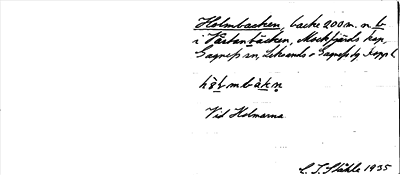 Holmbacken, backe 200 m. n b
i Västanbäcken, Mockfjärds kap,
Gagnefs sn, Leksands o Gagnefs tg. Kopp. l.
hòlmbàkn
Vid Holmarna
C. I. Ståhle 1935